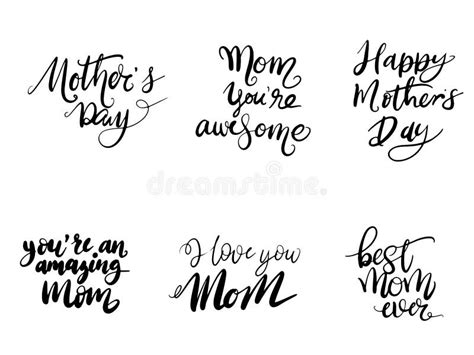 Mother's
Day
Mom
you're
awesome
Happy
Mother's
Day
dreamstime
you're an
amazing
Mom
I love you
Mom
best
Mom
ever